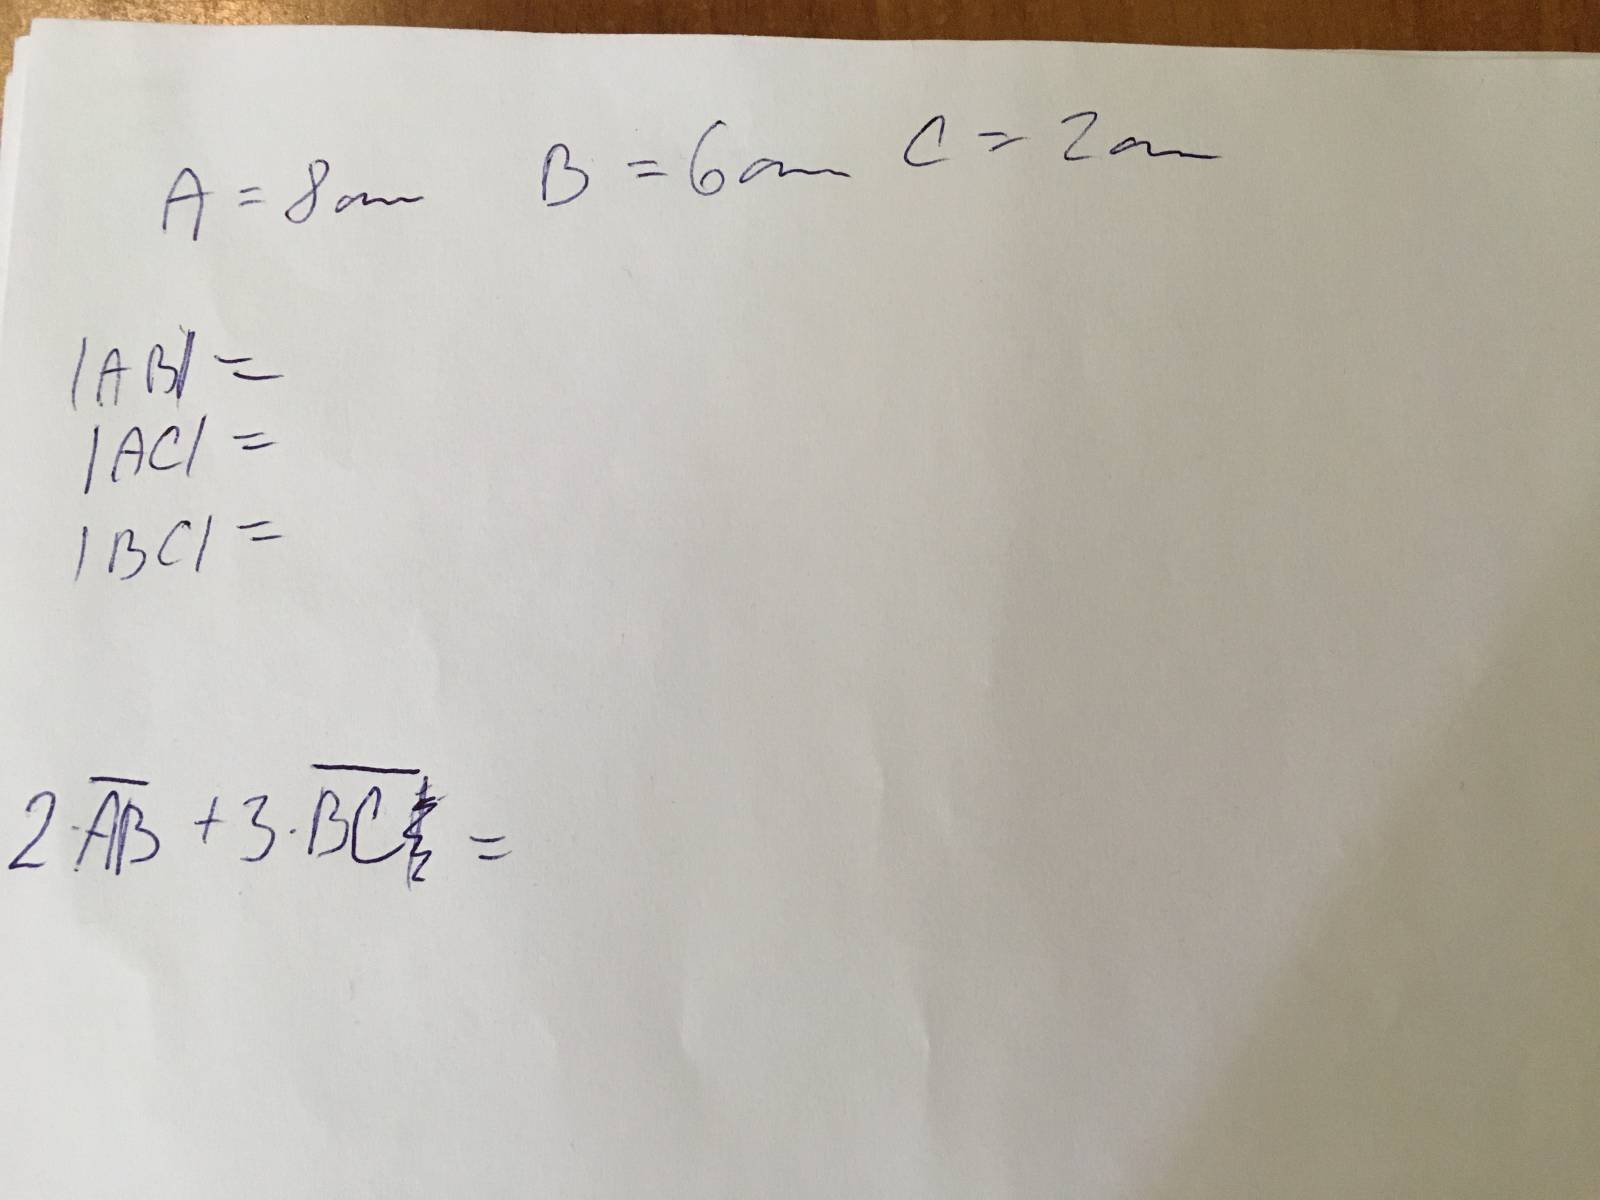 A = 8cm B = 6cm C = 2cm
|AB| =
|AC| =
|BC| =
2·A̅B̅ + 3·B̅C̅ =